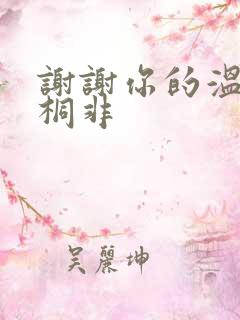 謝謝你的溫
桐非
吳麗坤